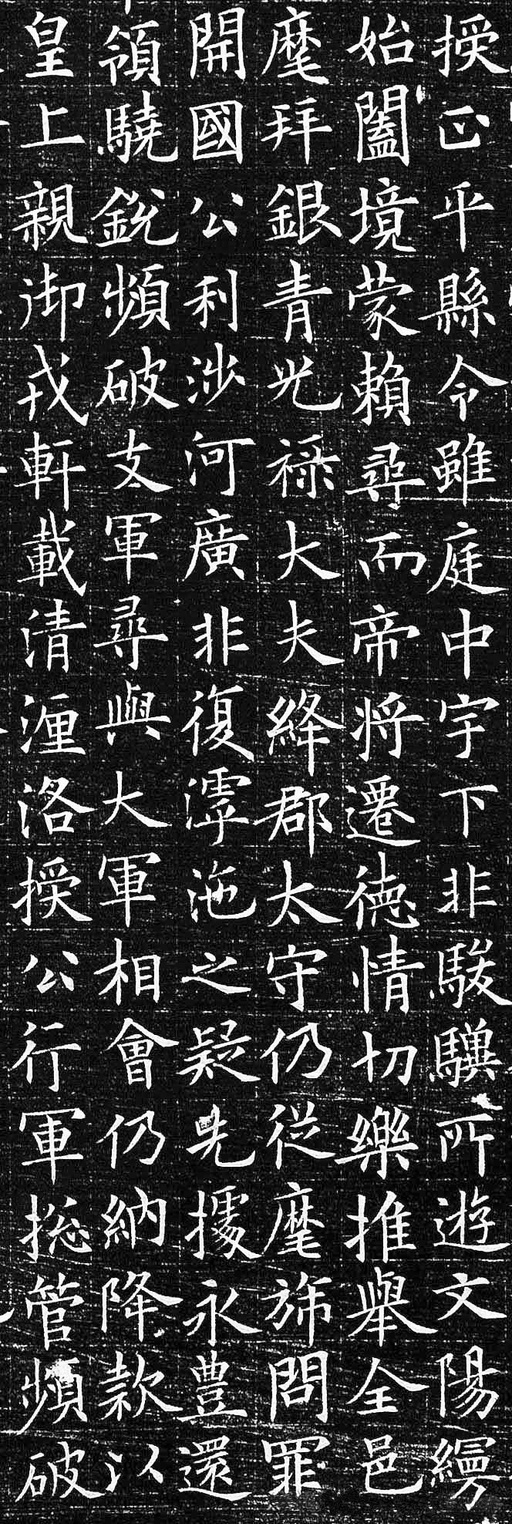 授正平縣令雖庭中宇下非駿驥所遊文陽縵
始闔境蒙賴尋而帝將遷德情切樂推舉全邑
麾拜銀青光祿大夫絳郡太守仍從麾旆問罪
開國公利涉河廣非復滹沲之疑先據永豊還
領驍銳頻破支軍尋與大軍相會仍納降款以
皇上親御戎軒載清瀍洛授公行軍揔管頻破